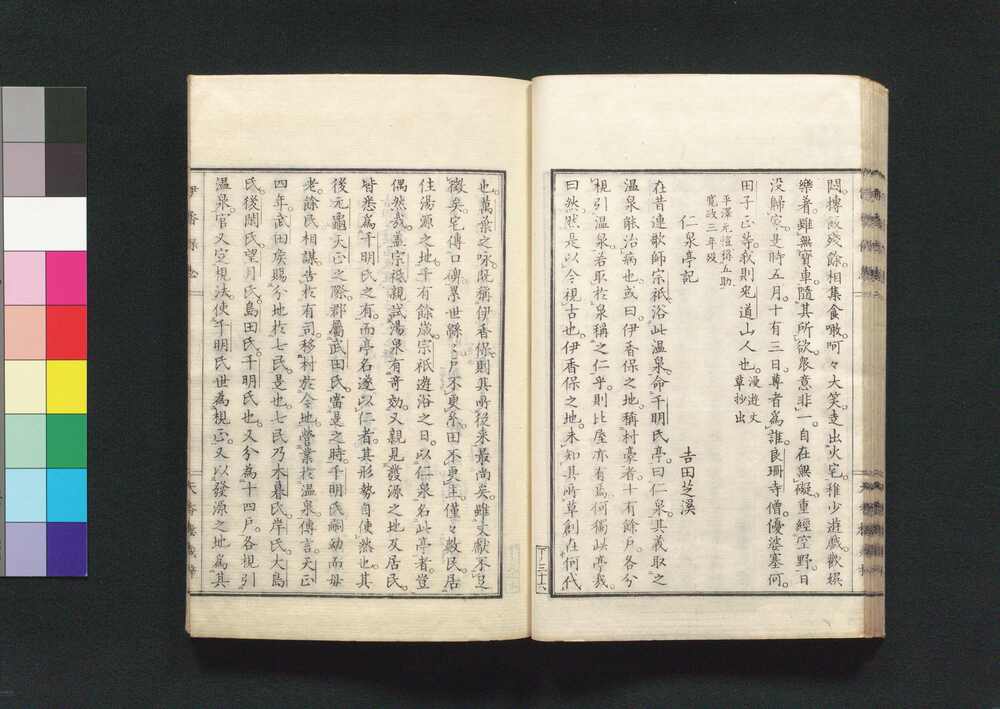 悶。摶飯殘餘。相集食噉。呵々大笑。走出火宅。稚少遊戲歡娯
樂着。雖無寳車。隨其所欲。衆意非一。自在無礙。重經空野。日
没歸家。是時五月十有三日。尊者為誰。良珊寺僧。優婆塞何。
田子正等。我則兜道山人也。漫遊文草抄出
平澤元愷得五助
寛政三年歿
仁泉亭記
吉田芝溪
在昔連歌師宗祇。浴此温泉。命千明氏亭。曰仁泉。其義取之
温泉能治病也。或曰。伊香保之地。稱村豪者。十有餘戸。各分
梘引温泉。若取於泉稱之仁乎。則比屋亦有為。何獨此亭哉。
曰然。然是以今視古也。伊香保之地。未知其所草創在何代
也。萬葉之咏。既稱伊香保。則其所從来最尚矣。雖文獻不足
徴矣。宅傳口碑。累世縣。戸不更。田不更主。僅々數民。居
住湯源之地。千有餘歳。宗祇遊浴之日。以仁泉名此亭者。豈
偶然哉。盖宗祇親試湯泉有奇効。又親見發源之地及居民。
皆悉為千明氏之有。而亭名遂以仁者。其形勢自使然也。其
後元龜天正之際。郡屬武田氏。當是之時。千明氏嗣幼而毋
老。餘民相謀。告於有司。移村於今地。營業於温泉。傳言。天正
四年。武田矦賜分地於七民。是也。七民乃木暮氏。岸氏。大島
氏。後閑氏。望月氏。島田氏。千明氏也。又分為十四戸。各梘引
温泉。官又定梘法。使千明氏世為梘正。又以發源之地為其
丁三十六